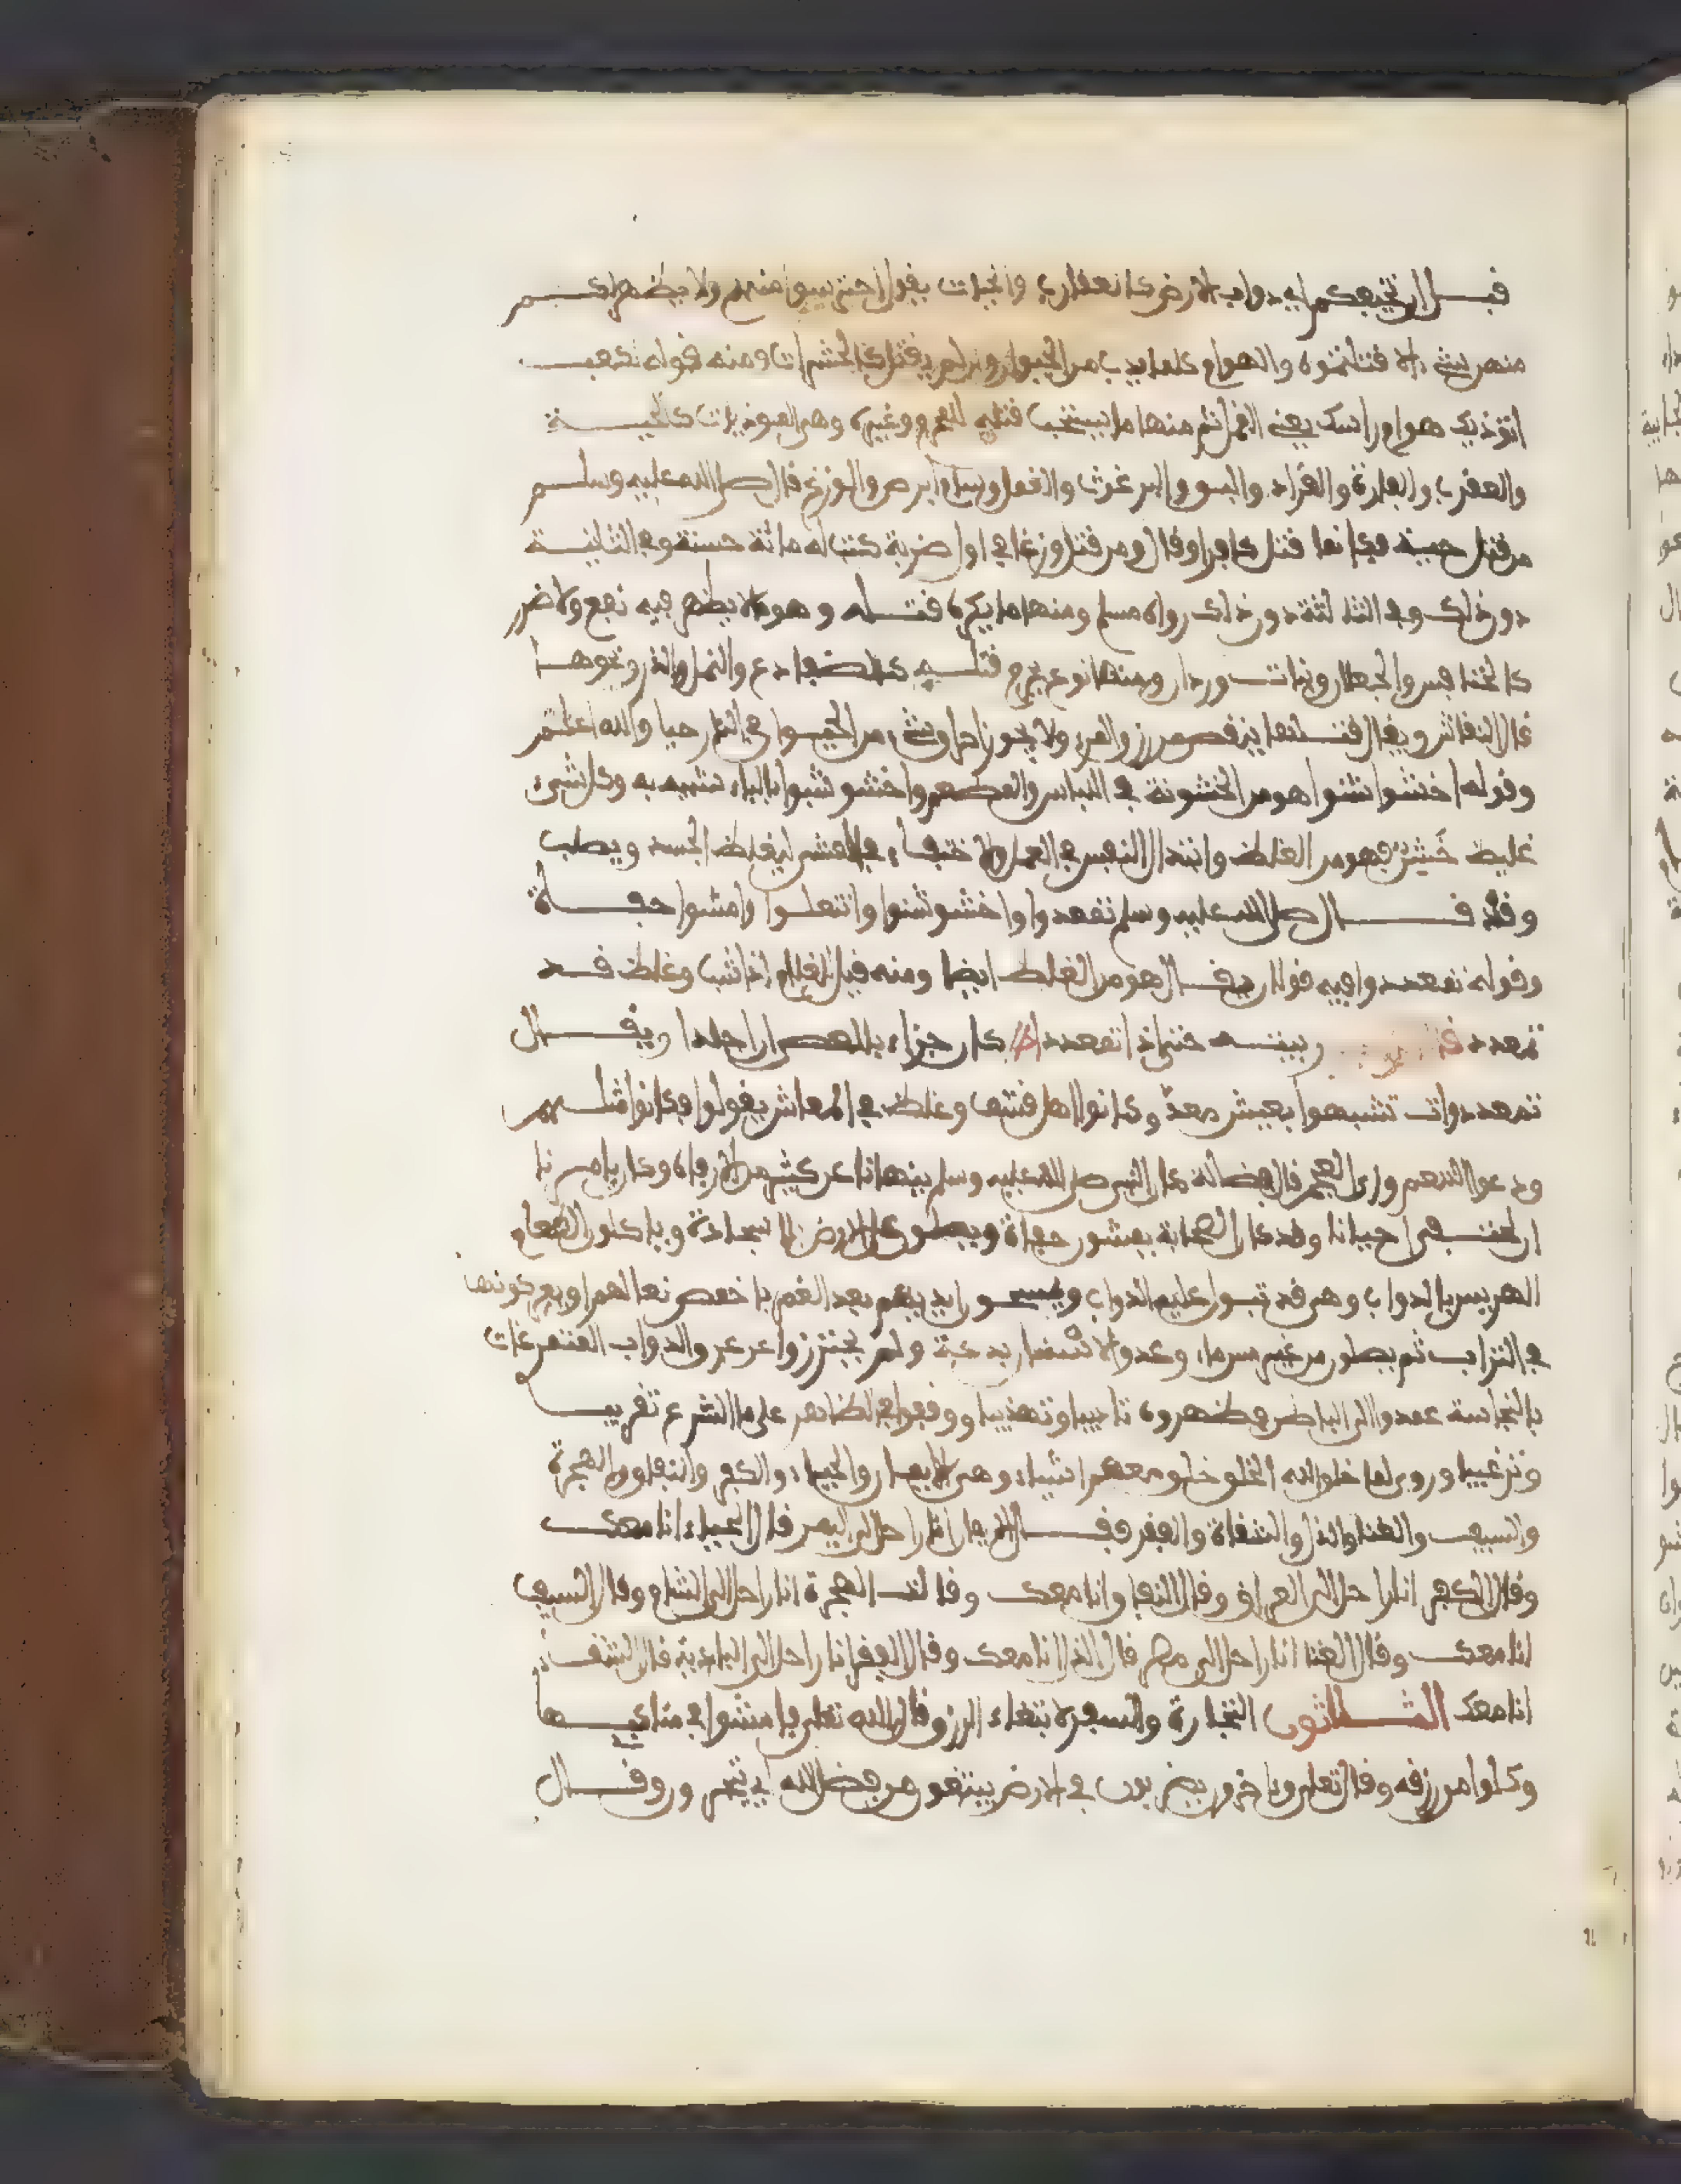 قبل ان تخيفكم اي دواب الارض كالعقارب والحيات يقول احترسوا منهم ولا يظهر لكم
منهن شيء الا قتلتموه والهوام كلما يدب من الحيوان وان لم يقتل كالحشرات ومنه قوله لكعب
اتؤذيك هوام راسك يعني القمل ثم منها ما يستحب قتله للمحرم وغيره وهي الموذيات كالحية
والعقرب والفارة والقراد والبق والبرغوث والقمل وسام ابرص والوزغ قال صلى الله عليه وسلم
من قتل حية فكانما قتل كافرا وقال ومن قتل وزغا في اول ضربة كتب له مائة حسنة وفي الثانية
دون ذلك وفي الثالثة دون ذلك رواه مسلم ومنها ما يكره قتله وهو ما لا يظهر فيه نفع ولا ضرر
كالخنافس والجعلان وبنات وردان ومنها نوع يحرم قتله كالضفادع والنمل والذر ونحوها
قال النقاش ويقال قتلها ينقص من رزق المرء ولا يجوز احراق شيء من الحيوان في النار حيا والله اعلم
وقوله اخشوشنوا هو من الخشونة في اللباس والمطعم واخشوشبوا بالباء شبيه به وكل شيء
غليظ خشن فهو من الغلظ وابتذال النفس في العمل والاحتفاء في المشي ليغلظ الجسد ويصلب
وقد قال صلى الله عليه وسلم تمعددوا واخشوشنوا وانتعلوا وامشوا حفاة
وقوله تمعددوا فيه قولان يقال هو من الغلظ ايضا ومنه قيل للغلام اذا شب وغلظ قد
تمعدد قال ربيته حتى اذا تمعددا كان جزاءي بالعصا ان اجلدا ويقال
تمعددوا تشبهوا بعيش معد وكانوا اهل قشف وغلظ في المعاش يقول فكونوا مثلهم
ودعوا التنعم وزي العجم قال فضالة كان النبي صلى الله عليه وسلم ينهانا عن كثير من الارفاه وكان يامرنا
ان نحتفي احيانا وقد كان الصحابة يمشون حفاة ويصلون على الارض بلا سجادة وياكلون الطعام
الهريس بالدواب وهي قد تبول عليه الدواب ويمسحون ايديهم بعد الغمر باخمص نعالهم او يعركونها
في التراب ثم يصلون من غير مس ماء وعدوا الاشنان بدعة ولم يحترزوا عن عرق الدواب المتمرغات
بالنجاسة عمدوا الى الباطن فطهروه تاديبا وتهذيبا ووقفوا في الظاهر على ما الشرع تقريبا
وترغيبا وروي لما خلق الله الخلق خلق معهم اشياء وهي الايمان والحياء والكفر والنفاق والهجرة
والسيف والغنا والذل والشقاة والفقر فقال الايمان انا راحل الى اليمن قال الحياء انا معك
وقال الكفر انا راحل الى العراق وقال النفاق وانا معك وقالت الهجرة انا راحل الى الشام وقال السيف
انا معك وقال الغنا انا راحل الى مصر قال الذل انا معك وقال الفقر انا راحل الى البادية قال الشقاة
انا معك الثلاثون التجارة والسفر لابتغاء الرزق قال الله تعلى فامشوا في مناكبها
وكلوا من رزقه وقال تعلى وءاخرون يضربون في الارض يبتغون من فضل الله اي يتجرون وقال